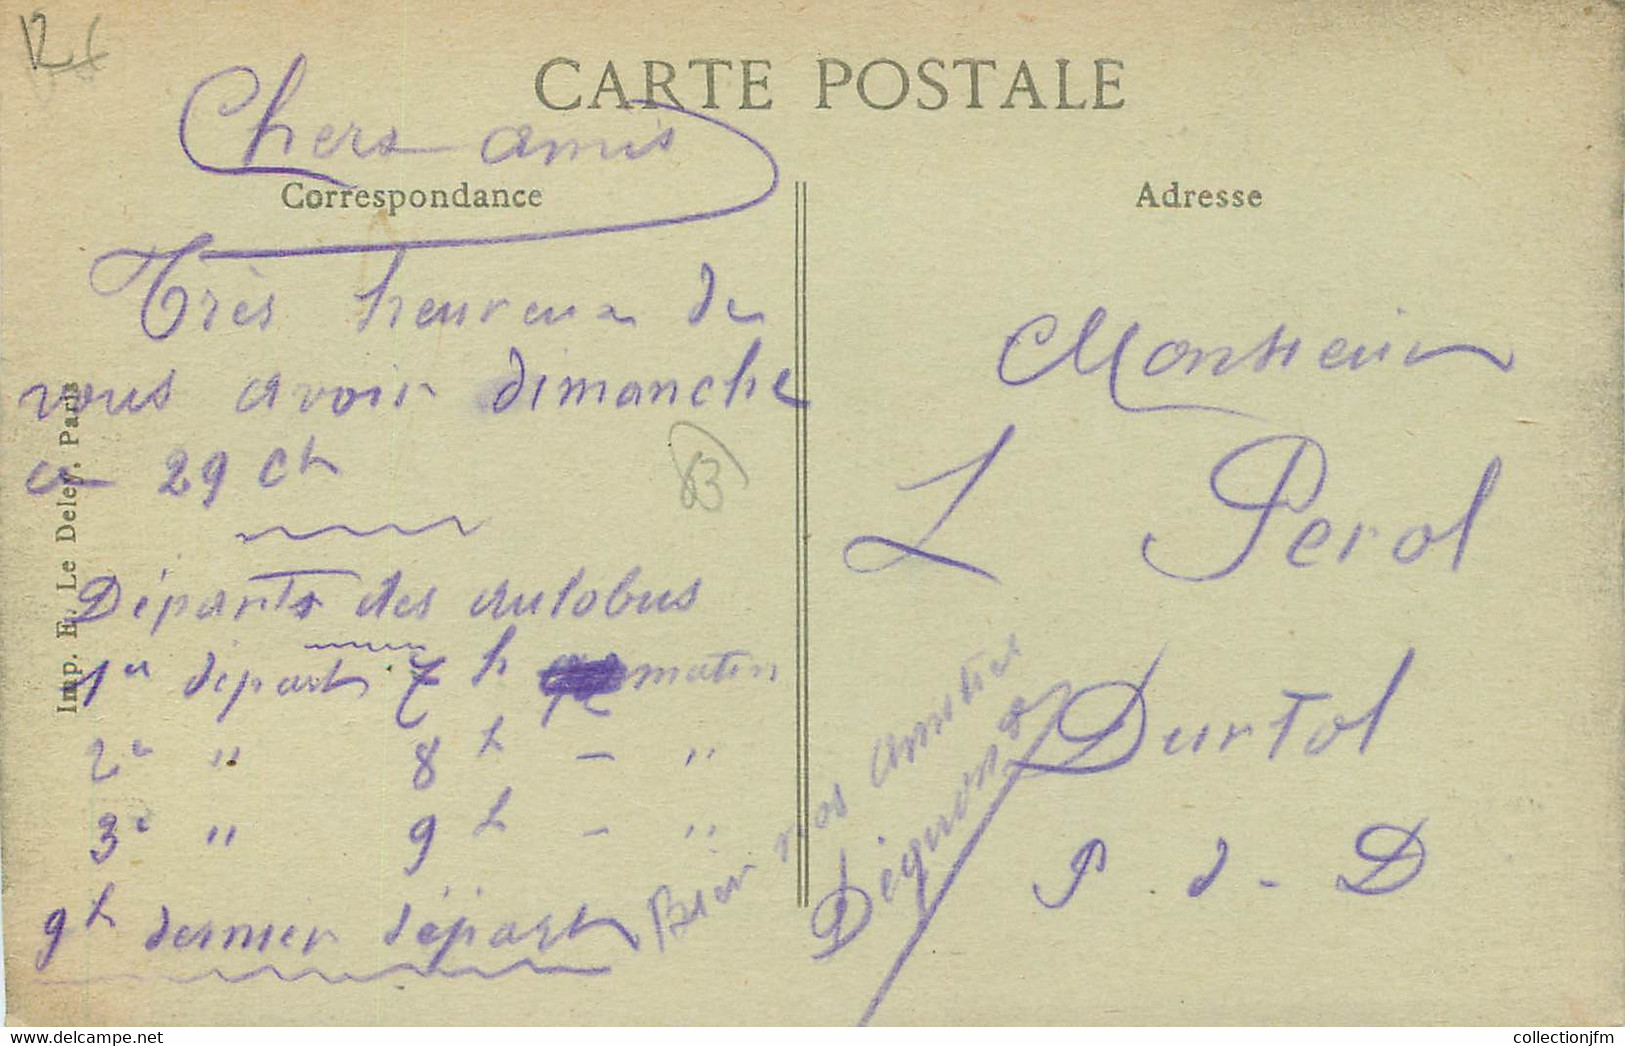 CARTE POSTALE
Chers amis
Correspondance
Très heureux de
vous avoir dimanche
ce 29 ct
Départs des autobus
1er départ 7 h matin
2e " 8 h - "
3e " 9 h - "
9h dernier départ
Bien nos amitiés
Adresse
Monsieur
L Perol
Durtol
P. d. D
63
Imp. E. Le Deley. Paris
collectionjfm